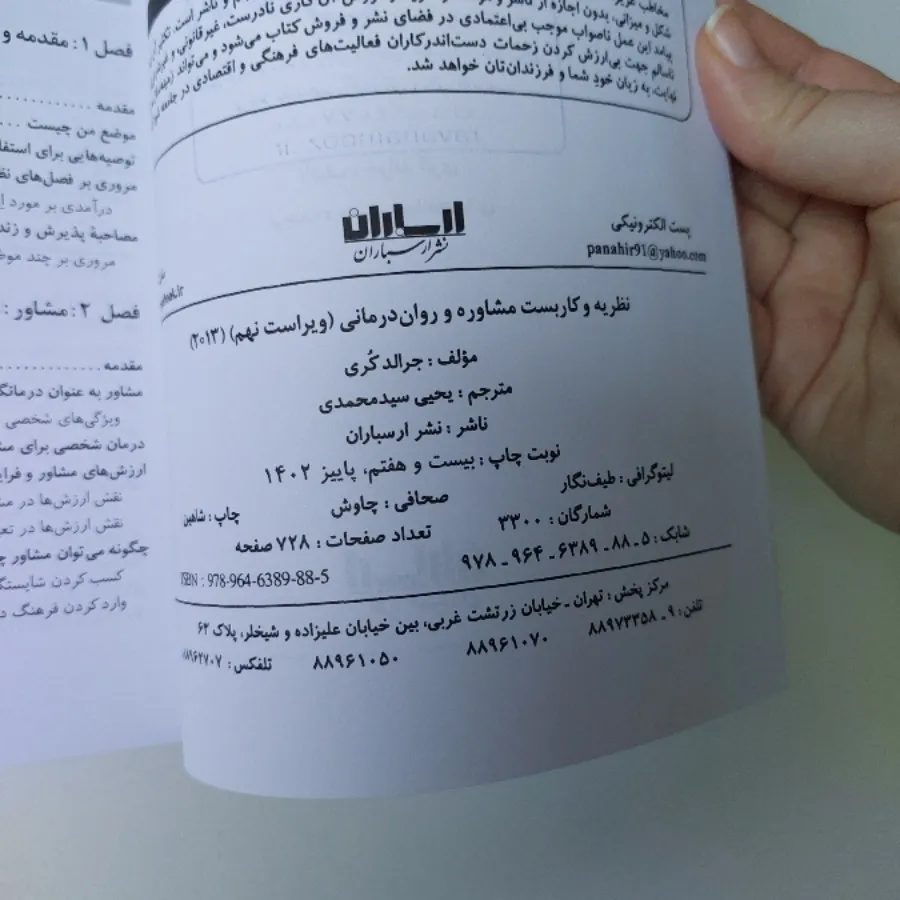 مخاطب
شکل و میزانی، بدون اجازه از ناشر و
پیامد این عمل ناصواب موجب بی‌اعتمادی در فضای نشر و فروش کتاب می‌شود و می‌تواند
ناسالم جهت بی‌ارزش کردن زحمات دست‌اندرکاران فعالیت‌های فرهنگی و اقتصادی در جامعه
نهایت، به زیان خودِ شما و فرزندان‌تان خواهد شد.
ارسباران
نشر ارسباران
پست الکترونیکی
panahir91@yahoo.com
نظریه و کاربست مشاوره و روان‌درمانی (ویراست نهم) (۲۰۱۳)
مؤلف : جرالد کُری
مترجم : یحیی سیدمحمدی
ناشر : نشر ارسباران
نوبت چاپ : بیست و هفتم، پاییز ۱۴۰۲
لیتوگرافی : طیف‌نگار صحافی : چاوش چاپ : شاهین
شمارگان : ۳۳۰۰ تعداد صفحات : ۷۲۸ صفحه
شابک : ۵ ـ ۸۸ ـ ۶۳۸۹ ـ ۹۶۴ ـ ۹۷۸ ISBN : 978-964-6389-88-5
مرکز پخش : تهران ـ خیابان زرتشت غربی، بین خیابان علیزاده و شیخلر، پلاک ۶۳
تلفن : ۹ ـ ۸۸۹۷۳۳۵۸ ۸۸۹۶۱۰۷۰ ۸۸۹۶۱۰۵۰ تلفکس : ۸۸۹۶۲۷۰۷
فصل ۱ : مقدمه و
مقدمه
موضع من چیست
توصیه‌هایی برای
مروری بر فصل‌های
درآمدی بر مورد
مصاحبهٔ پذیرش و
مروری بر چند
فصل ۲ : مشاور :
مقدمه
مشاور به عنوان
ویژگی‌های شخصی
درمان شخصی برای
ارزش‌های مشاور و
نقش ارزش‌ها در
نقش ارزش‌ها در
چگونه می‌توان مشاور
کسب کردن
وارد کردن فرهنگ